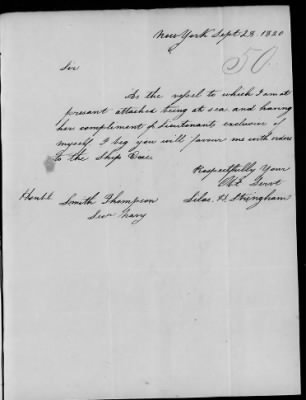 New York Sept 28 1820
50
Sir
As the vessel to which I am at
present attached being at sea and having
her complement of Lieutenants exclusive of
myself, I beg you will favour me with orders
to the Ship
Respectfully Your
Obt. Servt
Silas. H. Stringham
Honbl Smith Thompson
Secy Navy